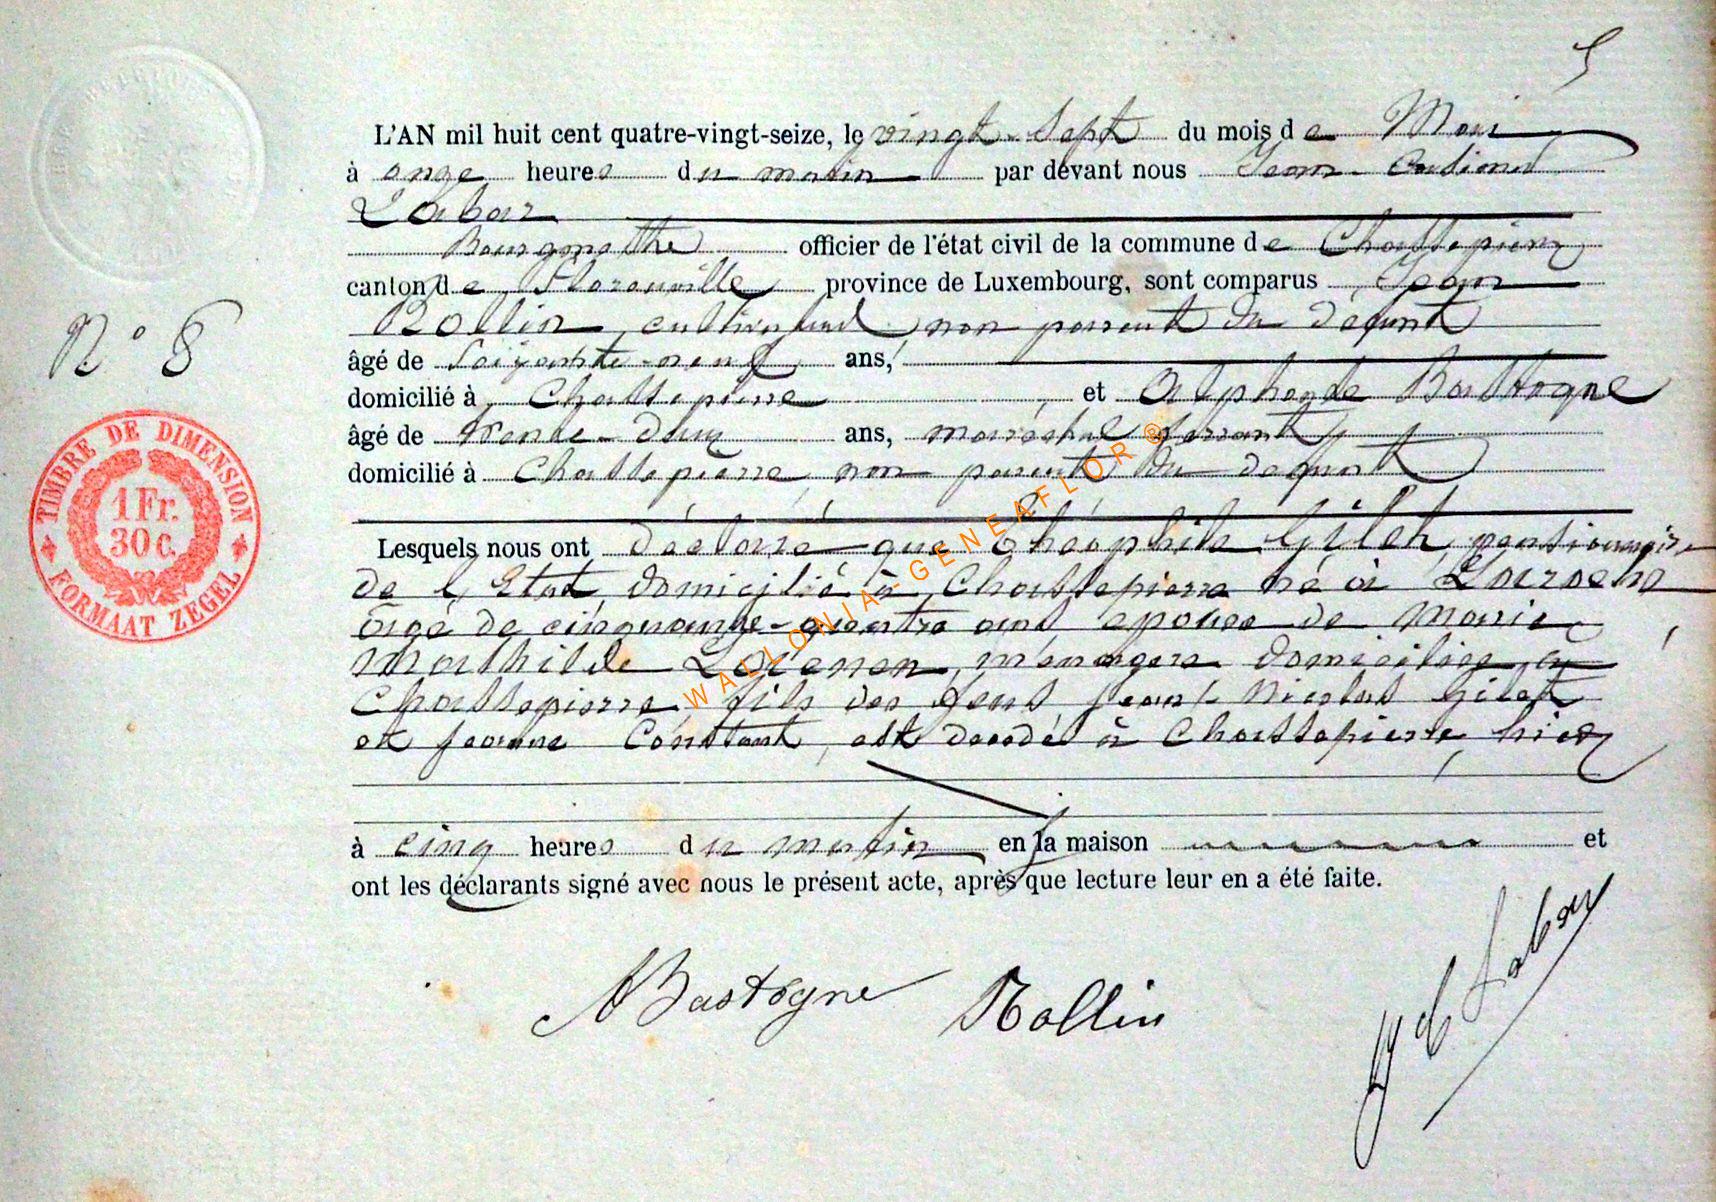 5
L'AN mil huit cent quatre-vingt-seize, le vingt-sept du mois de Mai
à onze heures du matin par devant nous Jean
Labar
Bourgmestre officier de l'état civil de la commune de Chassepierre
canton de Florenville province de Luxembourg, sont comparus Jean
Rollin, cultivateur, non parent du défunt
N° 8
âgé de soixante-neuf ans,
domicilié à Chassepierre et Alphonse Bastogne
âgé de trente-deux ans, maréchal ferrant
domicilié à Chassepierre, non parent du defunt
TIMBRE DE DIMENSION
1 Fr.
30 c.
FORMAAT ZEGEL
Lesquels nous ont déclaré que Théophile Gilet, pensionnaire
de l'Etat, domicilié à Chassepierre né à
âgé de cinquante-quatre ans, epoux de Marie
Mathilde ménagère domiciliée à
Chassepierre fils des feus Jean Nicolas Gilet
et Jeanne Constant, est décédé à Chassepierre, hier
à cinq heures du matin en la maison et
ont les déclarants signé avec nous le présent acte, après que lecture leur en a été faite.
ABastogne Rollin Labar
WALLONIA-GENEAFLOR ®